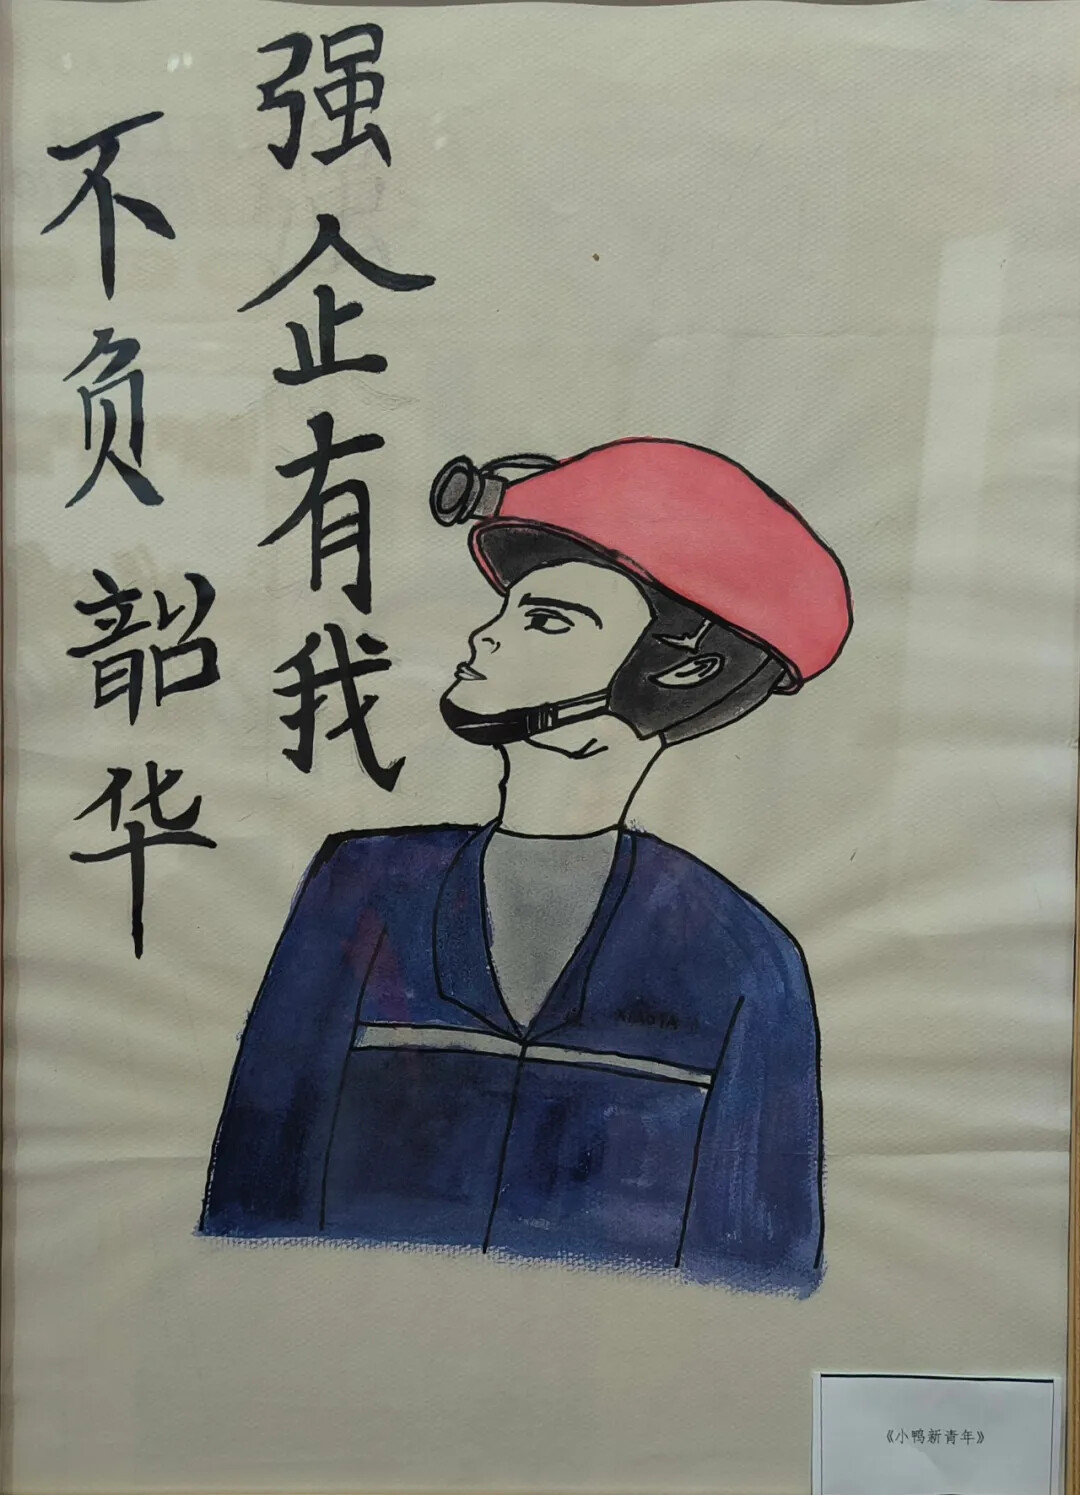 强企有我
不负韶华
XIAOYA
《小鸭新青年》